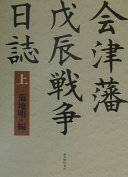 会津藩
戊辰戦争
日誌
上
菊地明・編